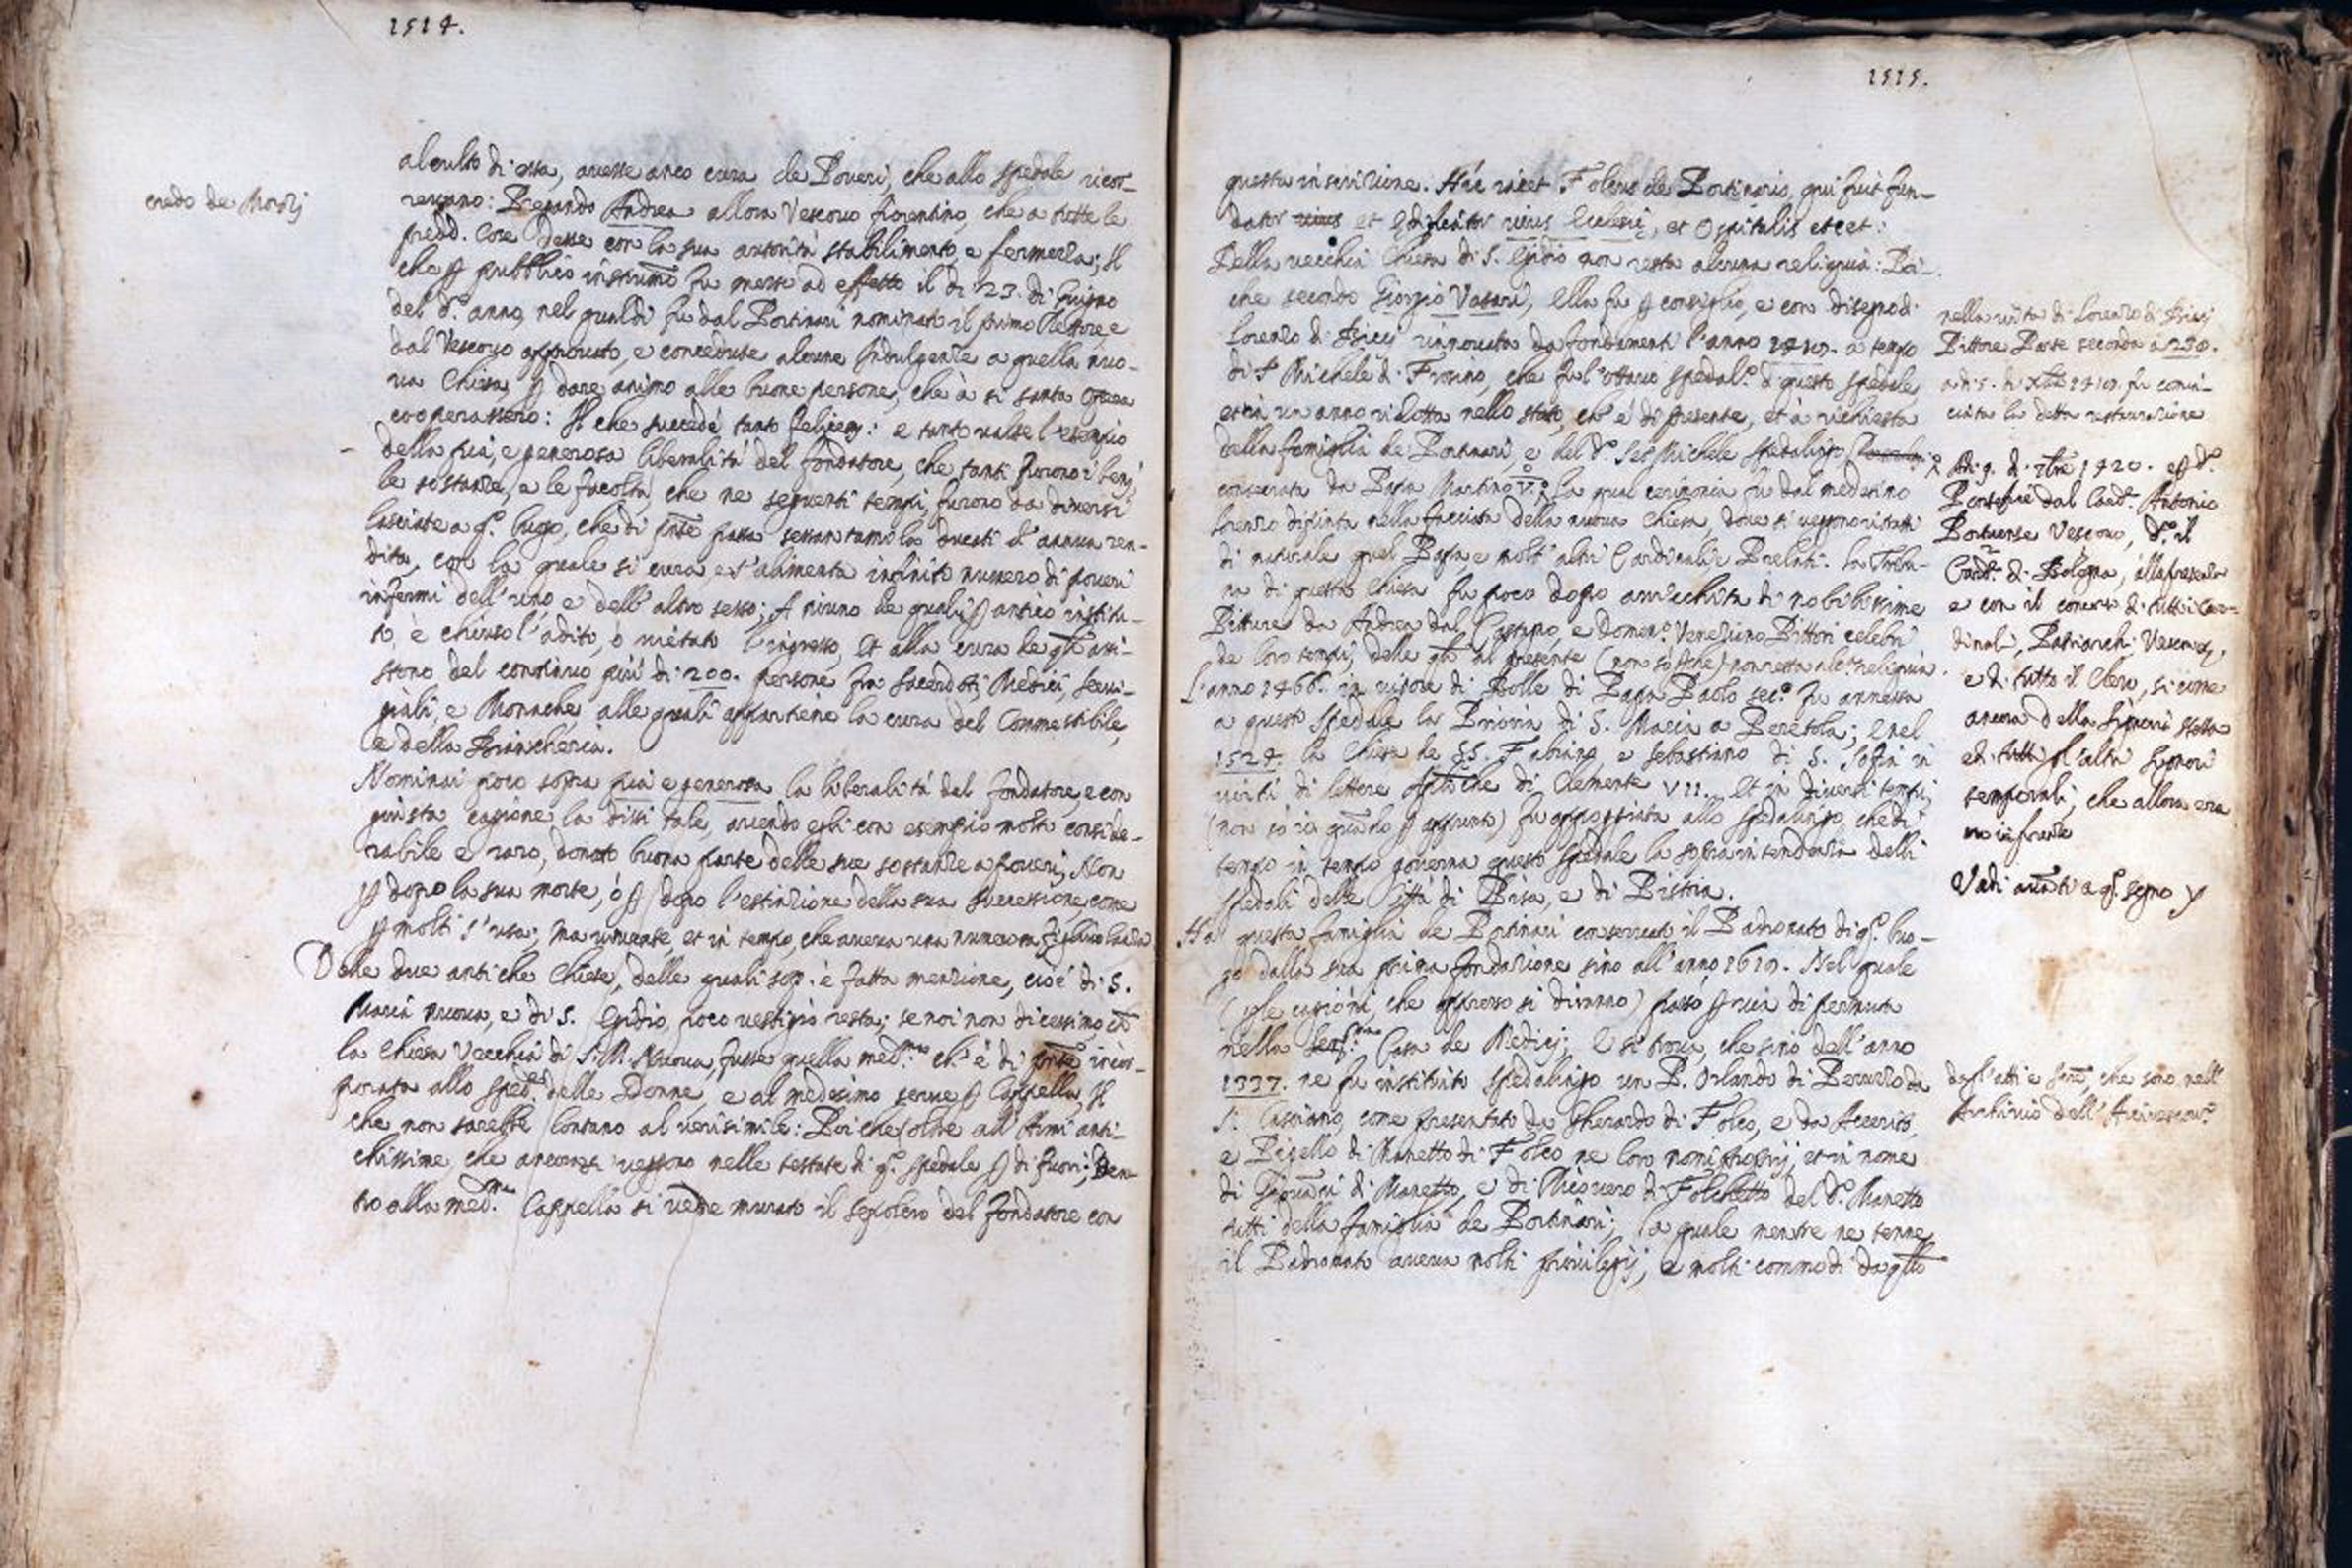 1514.
credo de Mozzi
al culto di essa, avesse anco cura de Poveri, che allo spedale ricor-
ressono: Pregando Andrea allora Vescovo fiorentino, che a tutte le
predd. cose desse con la sua autorità stabilimento, e fermezza; Il
che ꝑ pubblico instrumto fu messo ad effetto il dì 23. di Giugno
del d.º anno, nel qual dì fu dal Portinari nominato il primo Rettore e
dal Vescovo approvato, e concedute alcune Indulgenze a quella nuo-
va Chiesa, ꝑ dare animo alle buone persone, che à sì santa opera
cooperassero: Il che succedé tanto felicem: e tanto valse l'esempio
della pia, e generosa liberalità del fondatore, che tanti furono i beni,
le sostanze, e le facoltà, che ne seguenti tempi, furono da diversi
lasciate a q.º luogo, che di pnte passa sessantamila ducati d'annua ren-
dita, con la quale si cura, e s'alimenta infinito numero di poveri
infermi dell'uno e dell'altro sesso; A niuno de quali ꝑ antico institu-
to, è chiuso l'adito, o vietato l'ingresso, et alla cura de qli assi-
stono del continuo più di 200. persone fra Sacerdoti, Medici, servi-
giali, e Monache, alle quali appartiene la cura del Commestibile,
e della Biancheria.
Nominai poco sopra pia e generosa la liberalità del fondatore, e con
giusta cagione la dissi tale, avendo egli con esempio molto conside-
rabile e raro, donato buona parte delle sue sostanze a poveri, Non
ꝑ dopo la sua morte, ò ꝑ dopo l'estinzione della sua successione, come
ꝑ molti s'usa; ma vivente, et in tempo, che aveva una numerosa figliuolanza
Delle due antiche Chiese, delle quali sop. è fatta menzione, cioè di S.
Maria nuova, e di S. Egidio, poco vestigio resta; se noi non dicessimo ch
la Chiesa Vecchia di S. M. Nuova, fusse quella med.ma ch' è di pnte incor-
porata allo sped.e delle Donne, e al medesimo serve ꝑ Cappella, Il
che non sarebbe lontano al verisimile: Poiche (oltre all'Armi anti-
chissime, che ancora si veggono nelle testate di q.º spedale ꝑ di fuori; Den-
tro alla med.ma Cappella si vede murato il sepolcro del fondatore con
1515.
questa inscrizione. Hic iacet Folcus de Portinaris, qui fuit fun-
dator et Edificator uius Ecclesię, et Ospitalis etcet:
Della vecchia Chiesa di S. Egidio non resta alcuna reliquia: Poi-
che secondo Giorgio Vasari, ella fu ꝑ consiglio, e con disegno di
Lorenzo di Bicci rinnovata da fondamenti l'anno 1418. a tempo
di S. Michele di Frosino, che fu l'ottavo spedal.º di questo spedale,
et in un anno ridotta nello stato, ch' è di presente, et à richiesta
della famiglia de Portinari, e del d.º Ser Michele spedalingo
consecrata da Papa Martino V.º la qual cerimonia fu dal medesimo
Lorenzo dipinta nella facciata della nuova Chiesa, dove si veggono ritratti
di naturale quel Papa e molti altri Cardinali e Prelati. La Tribu-
na di questa Chiesa fu poco dopo arricchita di nobilissime
Pitture da Andrea dal Castagno, e Domen.º Veneziano Pittori celebri
de loro tempi, delle qli al presente (non so perche) non resta alc.ª reliquia.
L'anno 1466. in vigore di Bolle di Papa Paolo sec.º fu annessa
a questo spedale la Prioria di S. Maria a Peretola; e nel
1524. la Chiesa de SS. Fabiano, e Sebastiano di S. Sofia in
virtù di lettere Apliche di Clemente VII. Et in diversi tempi;
(non so in quando ꝑ appunto) fu appoggiata allo spedalingo che di
tempo in tempo governa questo spedale la soprintendenza delli
spedali delle Città di Pisa, e di Pistoia.
Ha questa famiglia de Portinari conservato il Padronato di q.º luo-
go dalla sua prima fondazione sino all'anno 1618. Nel quale
(ꝑ le cagioni, che appresso si diranno) passò ꝑ via di permuta
nella Ser.ma Casa de Medici; E si trova, che sino dell'anno
1337. ne fu instituito spedalingo un P. Orlando di Peruzzo da
S. Casciano, come presentato da Gherardo di Folco, e da Accerito,
e Pigello di Manetto di Folco ne loro nomi proprij, et in nome
di Giovani di Manetto, e di Ricovero di Folchetto del d.º Manetto
tutti della famiglia de Portinari; la quale mentre ne tenne
il Padronato aveva molti privilegij, e molti commodi da qllo
nella vita di Lorenzo di Bicci
Pittore Parte seconda a 230.
fu comin-
ciata la detta restaurazione
Adi 9. di 7bre 1420. 
Pontefice dal Card. Antonio
Portuense Vescovo, d.º il
Card. di Bologna, alla presenza
e con il concorso di tutti i Car-
dinali, Patriarchi, Vescovi,
e di tutto il Clero, si come
ancora della Signoria stessa
e di tutti gl'altri Signori
temporali, che allora era
no in firenze
Vedi avanti a q.º segno
dagl'atti e , che sono nell'
Archivio dell'Arcivescov.º